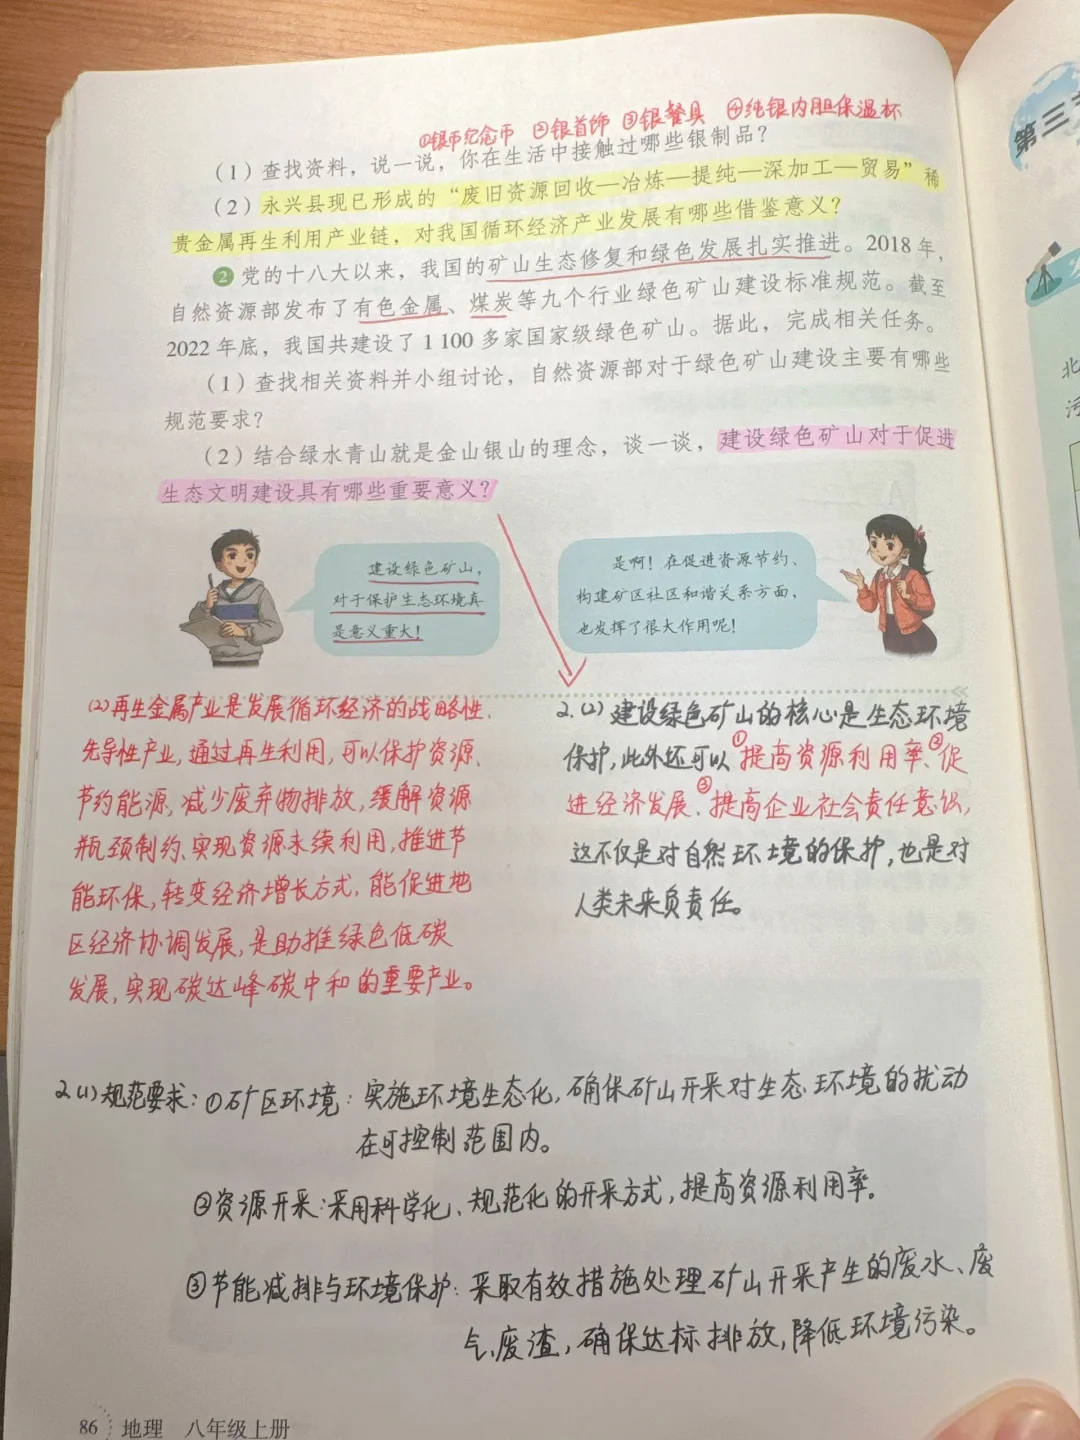 ①银币纪念币 ②银首饰 ③银餐具 ④纯银内胆保温杯
（1）查找资料，说一说，你在生活中接触过哪些银制品？
（2）永兴县现已形成的“废旧资源回收—冶炼—提纯—深加工—贸易”稀
贵金属再生利用产业链，对我国循环经济产业发展有哪些借鉴意义？
2 党的十八大以来，我国的矿山生态修复和绿色发展扎实推进。2018年，
自然资源部发布了有色金属、煤炭等九个行业绿色矿山建设标准规范。截至
2022年底，我国共建设了1 100多家国家级绿色矿山。据此，完成相关任务。
（1）查找相关资料并小组讨论，自然资源部对于绿色矿山建设主要有哪些
规范要求？
（2）结合绿水青山就是金山银山的理念，谈一谈，建设绿色矿山对于促进
生态文明建设具有哪些重要意义？
建设绿色矿山，
对于保护生态环境真
是意义重大！
是啊！在促进资源节约、
构建矿区社区和谐关系方面，
也发挥了很大作用呢！
(2)再生金属产业是发展循环经济的战略性、
先导性产业，通过再生利用，可以保护资源、
节约能源，减少废弃物排放，缓解资源
瓶颈制约、实现资源永续利用，推进节
能环保，转变经济增长方式，能促进地
区经济协调发展，是助推绿色低碳
发展，实现碳达峰碳中和的重要产业。
2.(2)建设绿色矿山的核心是生态环境
保护，此外还可以①提高资源利用率、②促
进经济发展、③提高企业社会责任意识，
这不仅是对自然环境的保护，也是对
人类未来负责任。
2.(1)规范要求：①矿区环境：实施环境生态化，确保矿山开采对生态环境的扰动
在可控制范围内。
②资源开采：采用科学化、规范化的开采方式，提高资源利用率。
③节能减排与环境保护：采取有效措施处理矿山开采产生的废水、废
气、废渣，确保达标排放，降低环境污染。
86 地理 八年级上册
第三
北
污